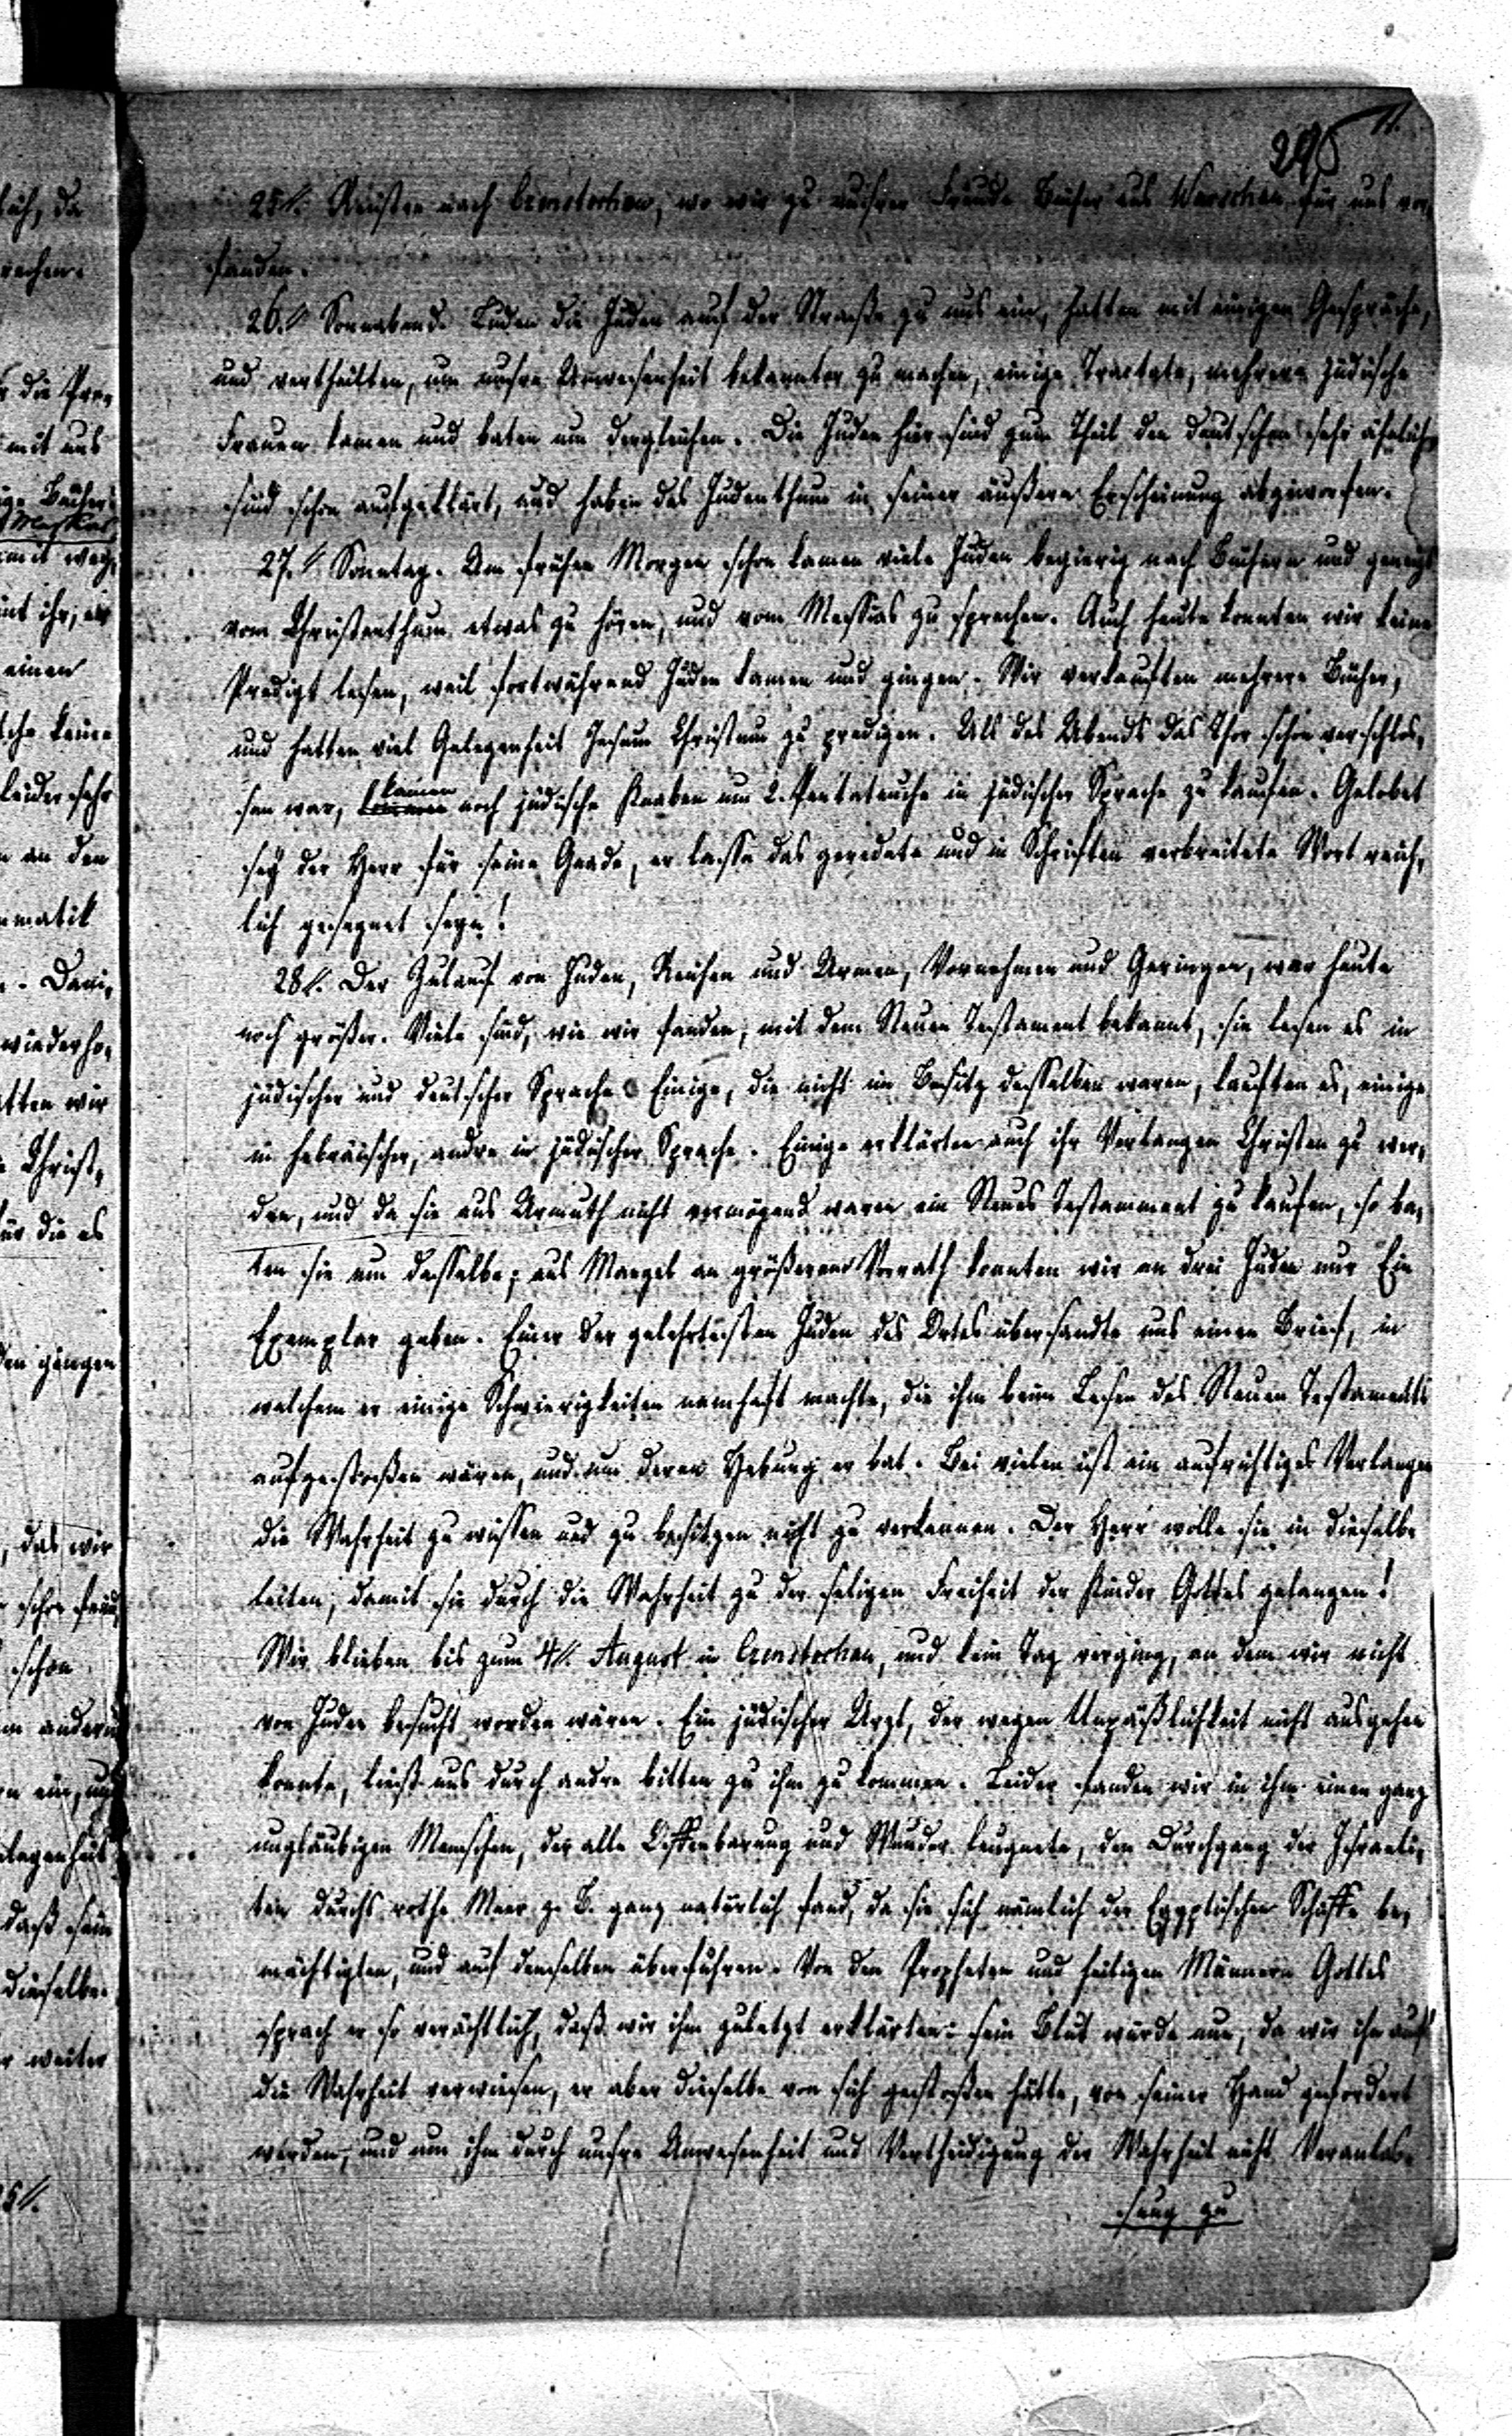 11.
245
25//. Reisten nach Czenstochau, wo wir zu unsrer Freude Bücher aus Warschau für uns vor,
fanden.
26.// Sonnabend. Luden die Juden auf der Straße zu uns ein, hatten mit einigen Gespräche,
und vertheilten, um unsre Anwesenheit bekannter zu machen, einige Tractate, mehrere jüdische
Frauen kamen und baten um dergleichen. Die Juden hier sind zum Theil den deutschen sehr ähnlich,
sind schon aufgeklärt, und haben das Judenthum in seiner äußern Erscheinung abgeworfen.
27.// Sonntag. Am frühen Morgen schon kamen viele Juden begierig nach Büchern und geneigt
vom Christenthum etwas zu hören, und vom Messias zu sprechen. Auch heute konnten wir keine
Predigt lesen, weil fortwährend Juden kamen und gingen. Wir verkauften mehrere Bücher,
und hatten viel Gelegenheit Jesum Christum zu predigen. Als des Abends das Thor schon verschlos,
sen war, kamen noch jüdische Knaben um 2. Pentateuche in jüdischer Sprache zu kaufen. Gelobet
sey der Herr für seine Gnade, er lasse das geredete und in Schriften verbreitete Wort reich,
lich gesegnet seyn!
28//. Der Zulauf von Juden, Reichen und Armen, Vornehmen und Geringen, war heute
noch größer. Viele sind, wie wir fanden, mit dem Neuen Testament bekannt, sie lesen es in
jüdischer und deutscher Sprache. Einige, die nicht im Besitz desselben waren, kauften es, einige
in hebräischer, andre in jüdischer Sprache. Einige erklärten auch ihr Verlangen Christen zu wer,
den, und da sie aus Armuth nicht vermögend waren ein Neues Testamment zu kaufen, so ba,
ten sie um dasselbe; aus Mangel an größerem Vorrath konnten wir an drei Juden nur Ein
Exemplar geben. Einer der gelehrtesten Juden des Ortes übersandte uns einen Brief, in
welchem er einige Schwierigkeiten namhaft machte, die ihm beim Lesen des Neuen Testaments
aufgestoßen wären, und um deren Hebung er bat. Bei vielen ist ein aufrichtiges Verlangen
die Wahrheit zu wissen und zu besitzen nicht zu verkennen. Der Herr wolle sie in dieselbe
leiten, damit sie durch die Wahrheit zu der seligen Freiheit der Kinder Gottes gelangen!
Wir blieben bis zum 4//. August in Czenstochau, und kein Tag verging, an dem wir nicht
von Juden besucht worden wären. Ein jüdischer Arzt, der wegen Unpäßlichkeit nicht ausgehen
konnte, ließ uns durch andre bitten zu ihm zu kommen. Leider fanden wir in ihm einen ganz
ungläubigen Menschen, der alle Offenbarung und Wunder leugnete, den Durchgang der Israeli,
ten durchs rothe Meer z. B. ganz natürlich fand, da sie sich nämlich der Egyptischen Schiffe be,
mächtigten, und auf denselben überfuhren. Von den Propheten und heiligen Männern Gottes
sprach er so verächtlich, daß wir ihm zuletzt erklärten: sein Blut würde nun, da wir ihn auf
die Wahrheit verwiesen, er aber dieselbe von sich gestoßen hätte, von seiner Hand gefordert
werden, und um ihm durch unsre Anwesenheit und Vertheidigung der Wahrheit nicht Veranlas,
sung zu